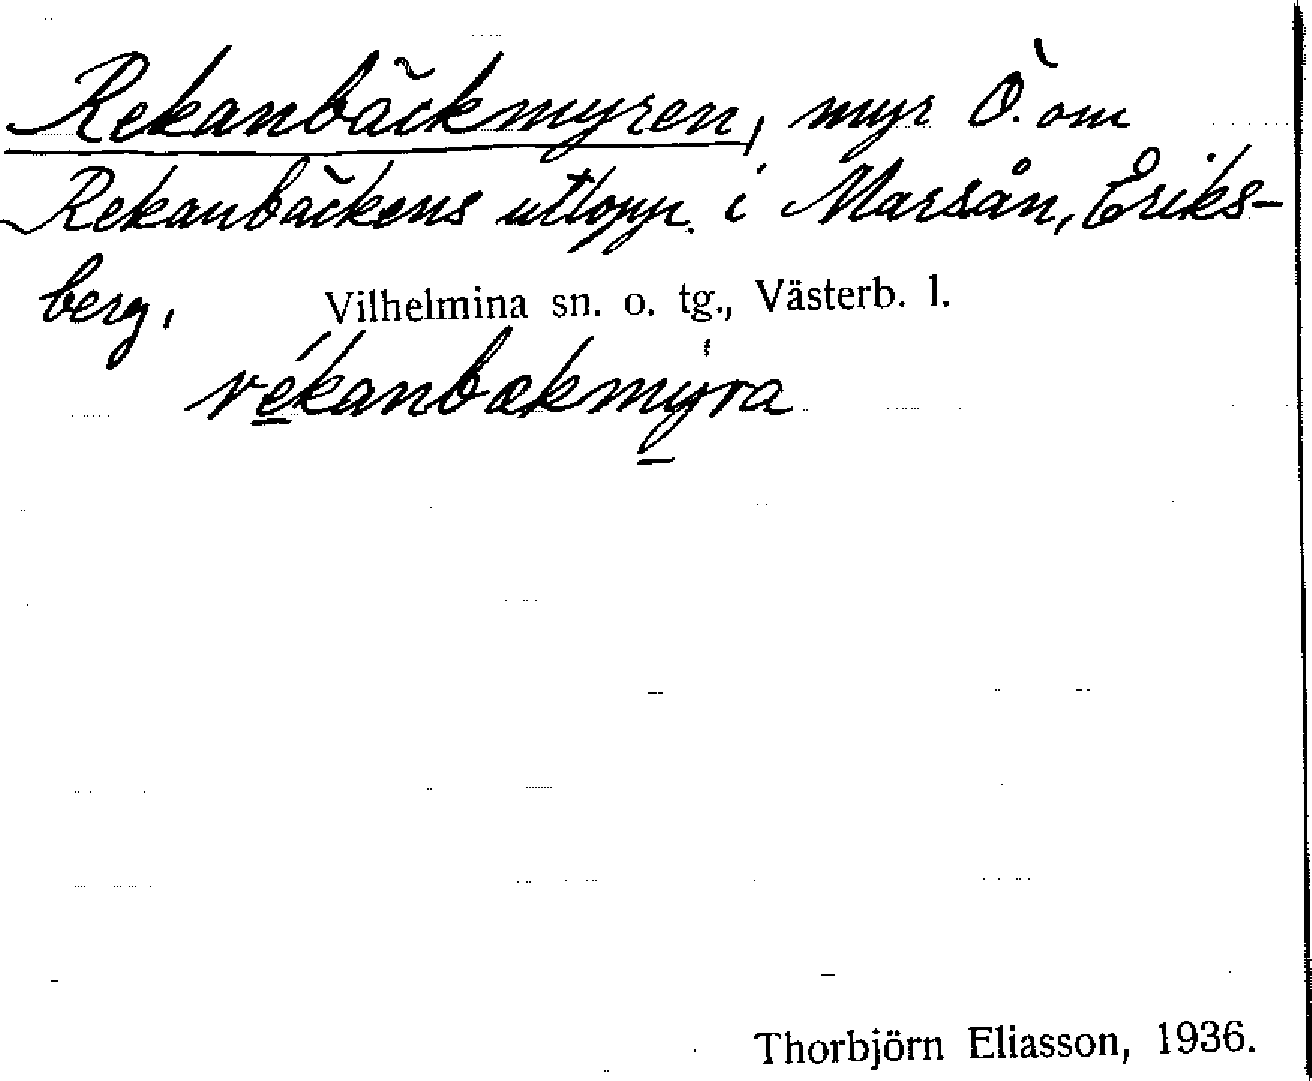 Rekanbäckmyren, myr Ö. om
Rekanbäckens utlopp i Marsån, Eriks-
berg,
Vilhelmina sn. o. tg., Västerb. l.
rékanbækmy̍ra
Thorbjörn Eliasson, 1936.